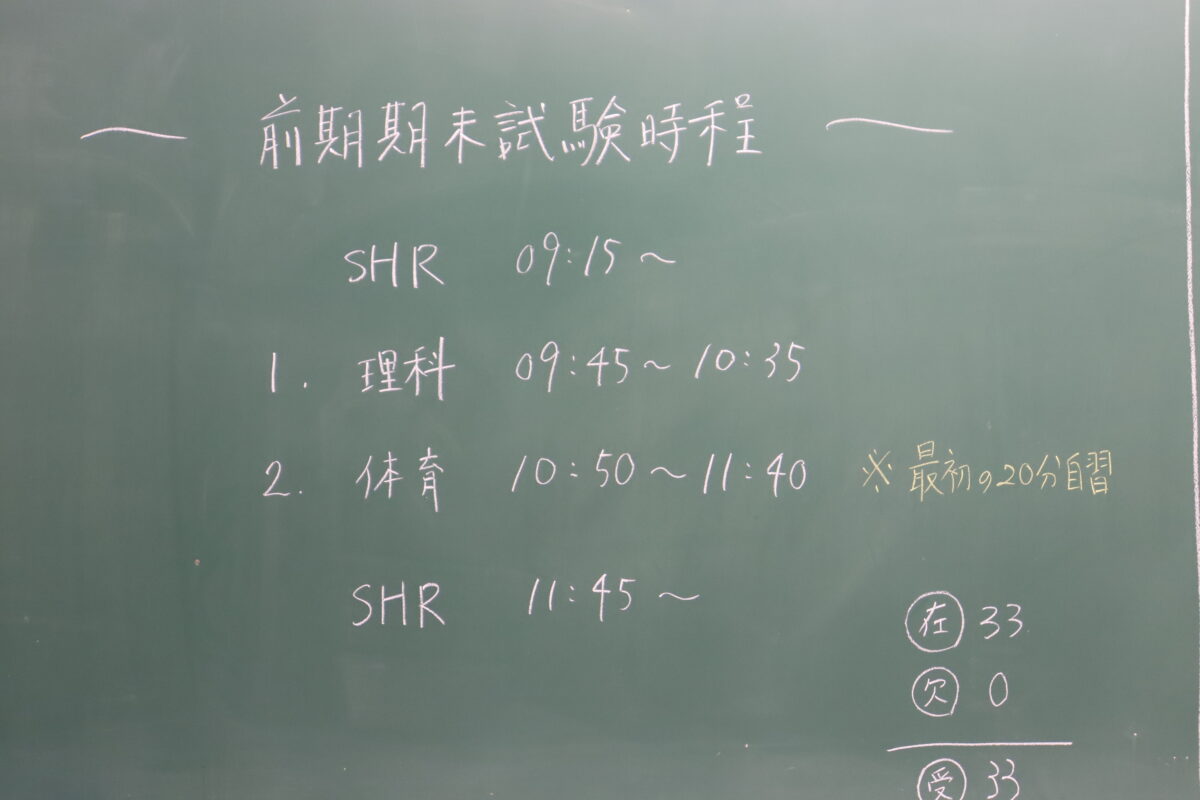 ～ 前期期末試験時程 ～
SHR 09:15～
1. 理科 09:45～10:35
2. 体育 10:50～11:40 ※最初の20分自習
SHR 11:45～
在 33
欠 0
受 33